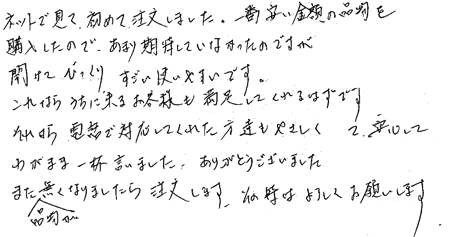 ネットで見て、初めて注文しました。一番安い金額の品物を
購入したので、あまり期待していなかったのですが
開けてびっくり すごい使いやすいです。
これならうちに来るお客様も満足してくれるはずです
それから電話で対応してくれた方達もやさしくて、安心して
わがまま一杯言いました。ありがとうございました
また無くなりましたら注文します、その時はよろしくお願いします。
品物が